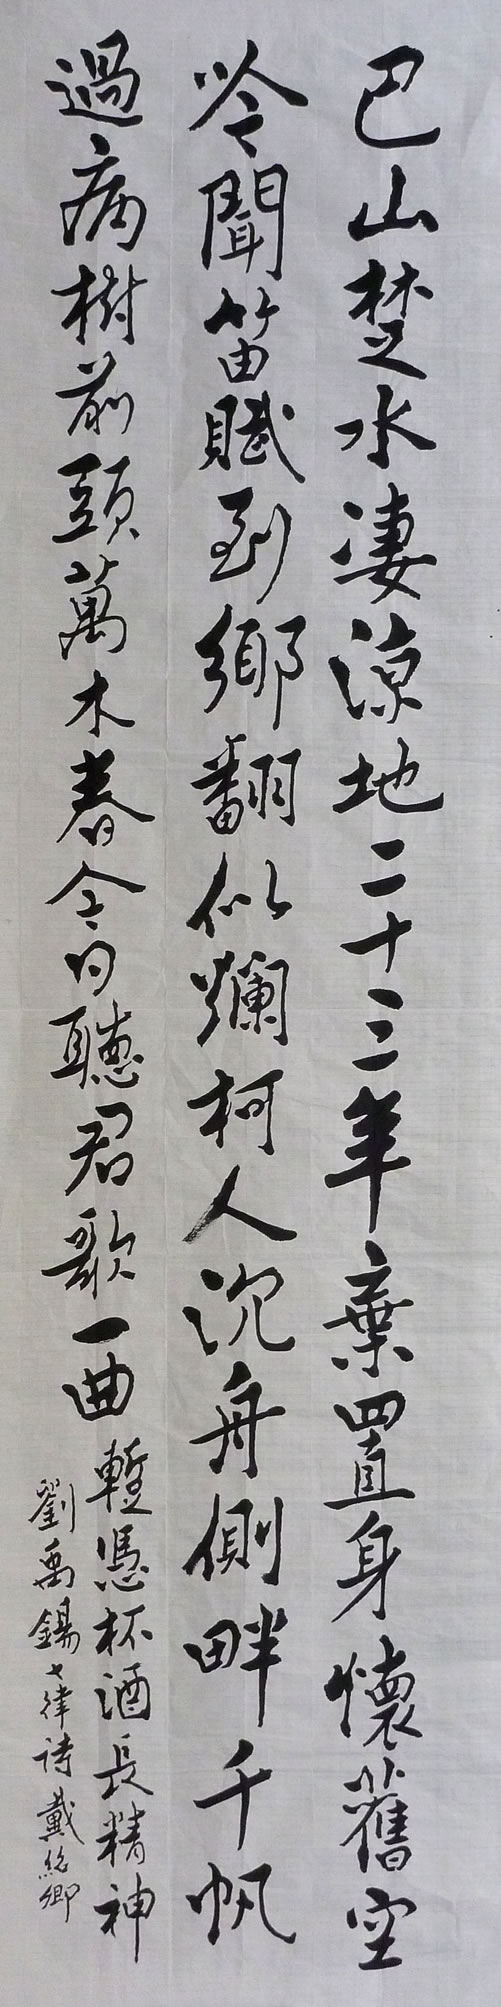 巴山楚水凄涼地二十三年棄置身懷舊空
吟聞笛賦到鄉翻似爛柯人沉舟側畔千帆
過病樹前頭萬木春今日聽君歌一曲暫憑杯酒長精神
劉禹錫七律詩戴紹卿